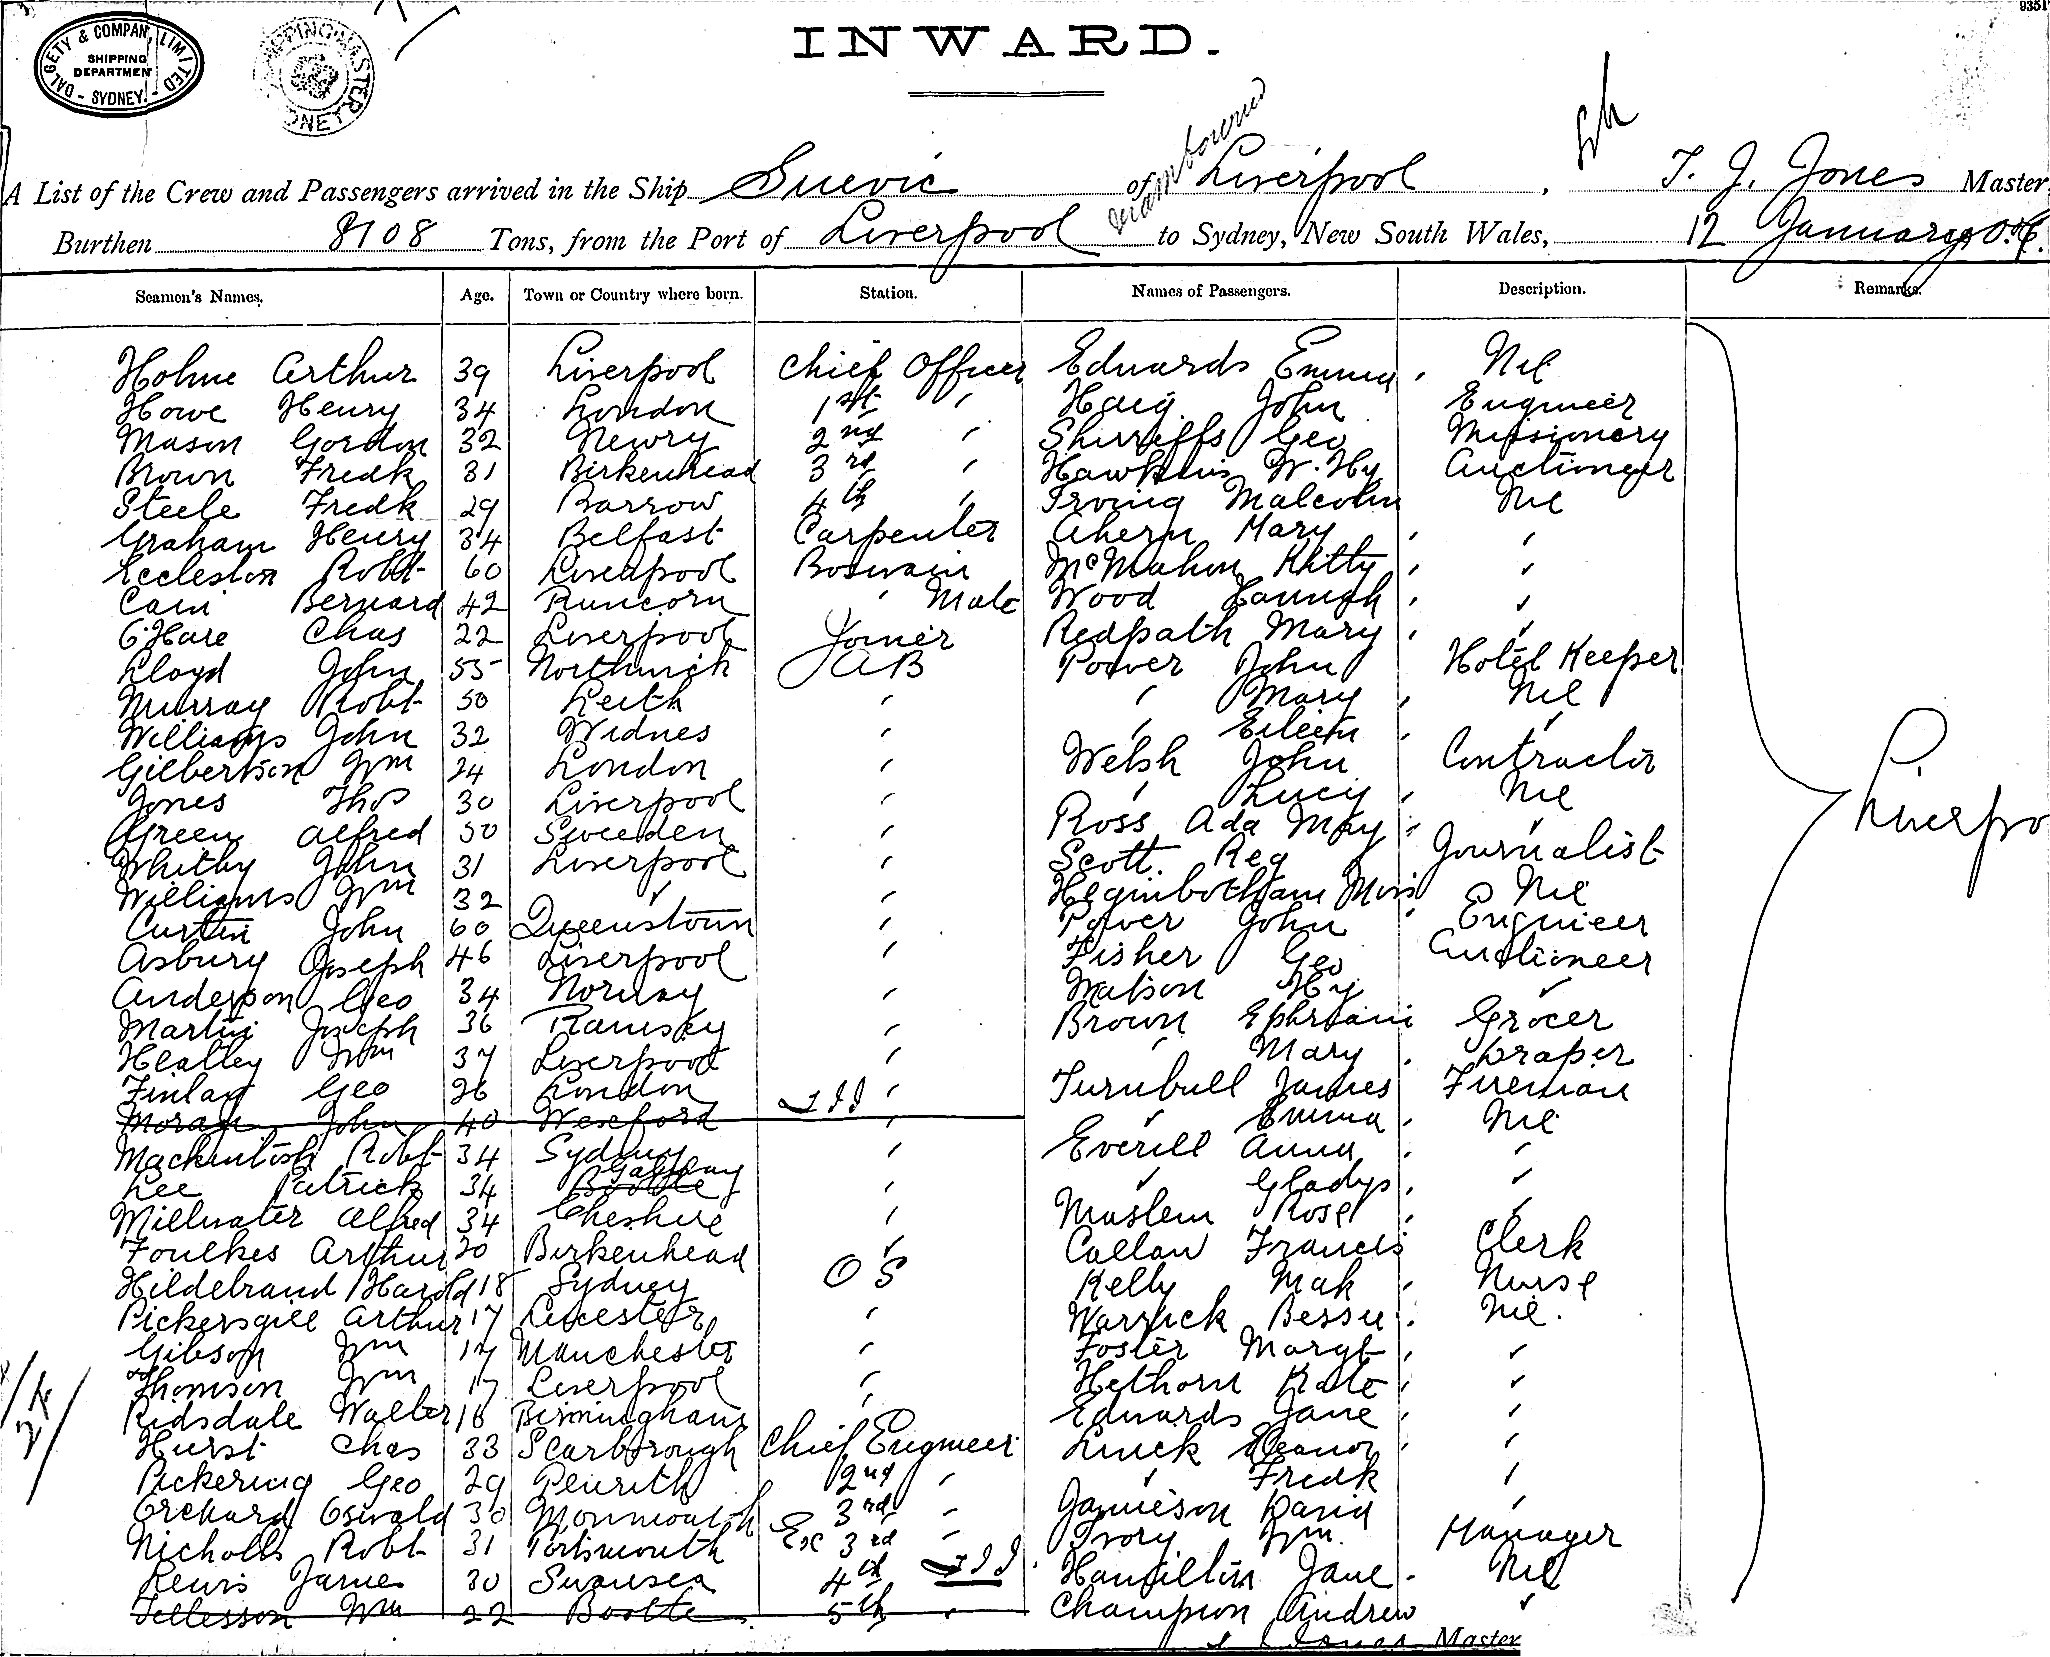 9351
DALGETY & COMPANY LIMITED
SHIPPING
DEPARTMENT
- SYDNEY. -
SHIPPING MASTER SYDNEY
INWARD.
A List of the Crew and Passengers arrived in the Ship Suevic of Liverpool, T. J. Jones Master,
Burthen 8108 Tons, from the Port of Liverpool to Sydney, New South Wales, 12 January
Seamen's Names. Age. Town or Country where born. Station. Names of Passengers. Description. Remarks.
Holme Arthur 39 Liverpool Chief Officer Edwards Emma Nil
Howe Henry 34 London 1st " Haig John Engineer
Mason Gordon 32 Newry 2nd " Shirreffs Geo Missionery
Brown Fredk 31 Birkenhead 3rd " Hawkins W. Hy Auctioneer
Steele Fredk 29 Barrow 4th " Irving Malcolm Nil
Graham Henry 34 Belfast Carpenter Ahern Mary "
Eccleston Robt 60 Liverpool Boswain McMahon Kitty "
Cain Bernard 42 Runcorn " Mate Wood Hannah "
O'Hare Chas 22 Liverpool Joiner Redpath Mary "
Lloyd John 55 Northwich AB Power John Hotel Keeper
Murray Robt 50 Leith " " Mary Nil
Williams John 32 Widnes " " Eileen "
Gilbertson Wm 24 London " Welsh John Contractor
Jones Thos 30 Liverpool " " Lucy Nil
Green Alfred 50 Sweeden " Ross Ada May "
Whitby John 31 Liverpool " Scott Reg Journalist
Williams Wm 32 " " Heginbotham Nil
Curtin John 60 Queenstown " Power John Engineer
Asbury Joseph 46 Liverpool " Fisher Geo Auctioneer
Anderson Geo 34 Norway " Watson Hy "
Martin Joseph 36 Ramsey " Brown Ephriam Grocer
Healley Wm 37 Liverpool " " Mary Draper
Finlay Geo 26 London " Turnbull James Fireman
Moran John 40 Wexford " " Emma Nil
Mackintosh Robt 34 Sydney " Everill Anna "
Lee Patrick 34 Bootle Galway " " Gladys "
Millwater Alfred 34 Cheshire " Maslem Rose "
Foulkes Arthur 20 Birkenhead " Callan Francis Clerk
Hildebrand Harold 18 Sydney O S Kelly Mak Nurse
Pickersgill Arthur 17 Leicester " Warrick Bessie Nil.
Gibson Wm 17 Manchester " Foster Margt "
Thomson Wm 17 Liverpool " Hethorn Kate "
Ridsdale Walter 16 Birmingham " Edwards Jane "
Hurst Chas 33 Scarbrough Chief Engineer Luick Eleanor "
Pickering Geo 29 Penrith 2nd " " Fredk "
Orchard Oswald 30 Monmouth 3rd " Jamieson David "
Nicholls Robt 31 Portsmouth Ex 3rd " Ivory Wm. Manager
Lewis James 30 Swansea 4th Hamilton Jane Nil
Tellesson Wm 22 Bootle 5th " Champion Andrew "
Master